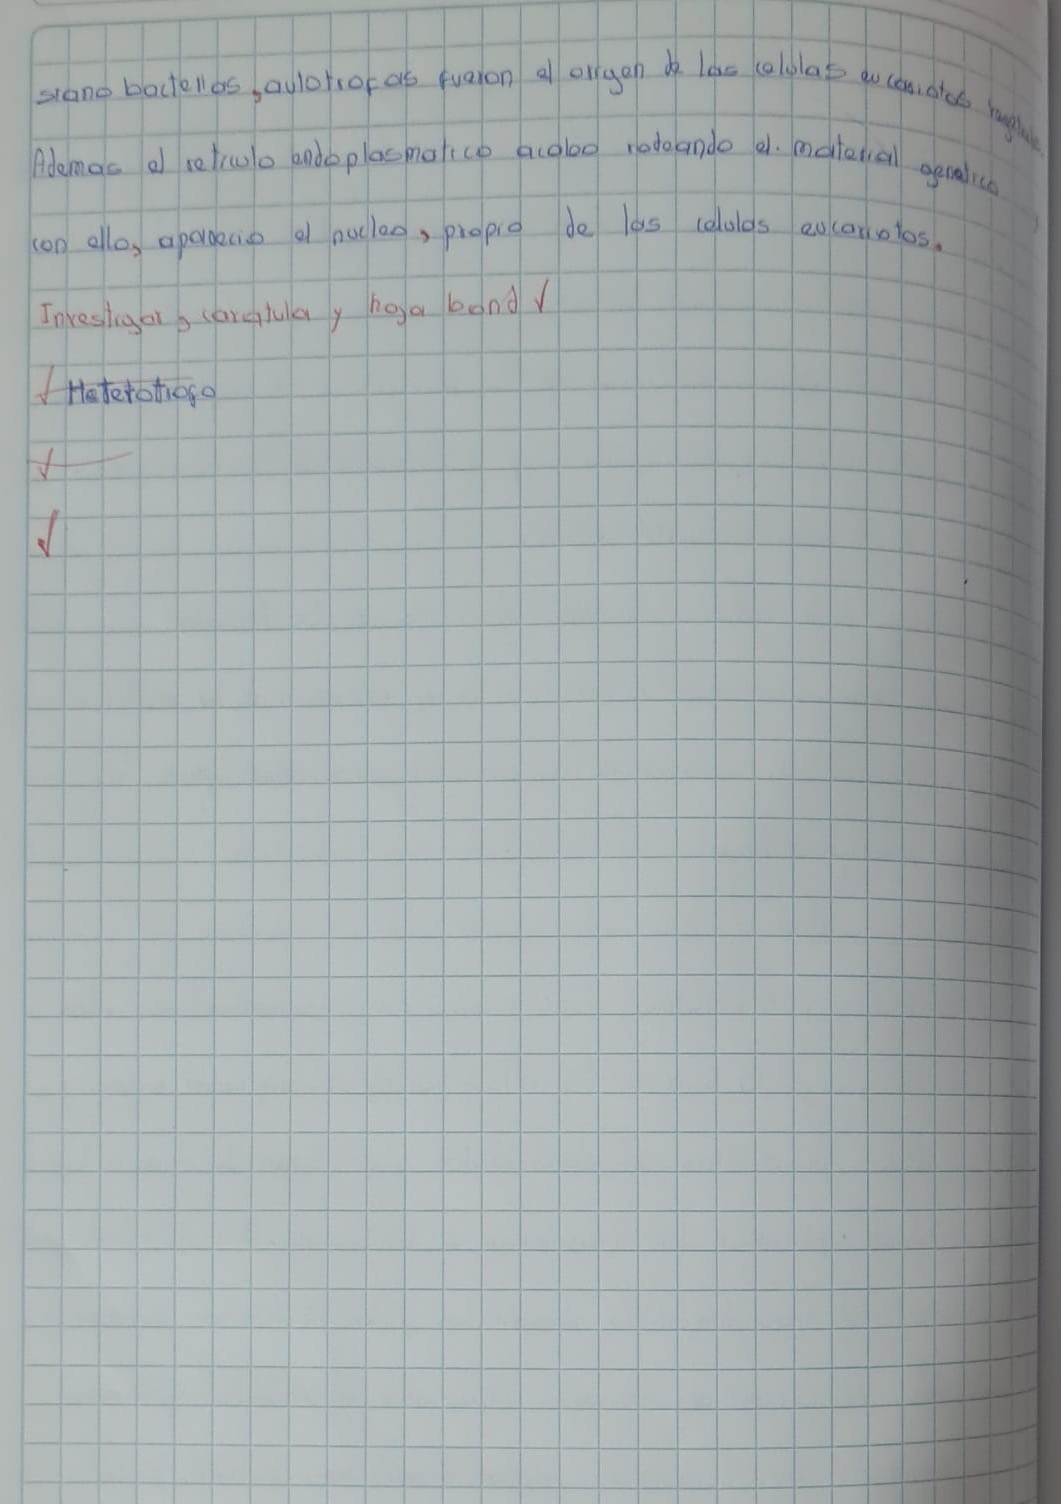 siano bacterias, autotrofas fueron el origen de las celulas eucariotas
Ademas el reticulo endoplasmatico acabo rodeando el. material genetico
con ello, aparecio el nucleo, propio de las celulas eucariotas.
Investigar, caratula y hoja bond √
√ Heterotrofo
√
√